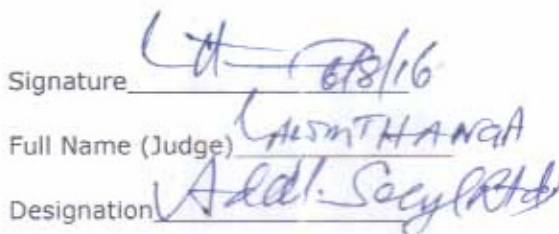 Signature 6/8/16
Full Name (Judge)
Designation Addl. Secy (Rtd)